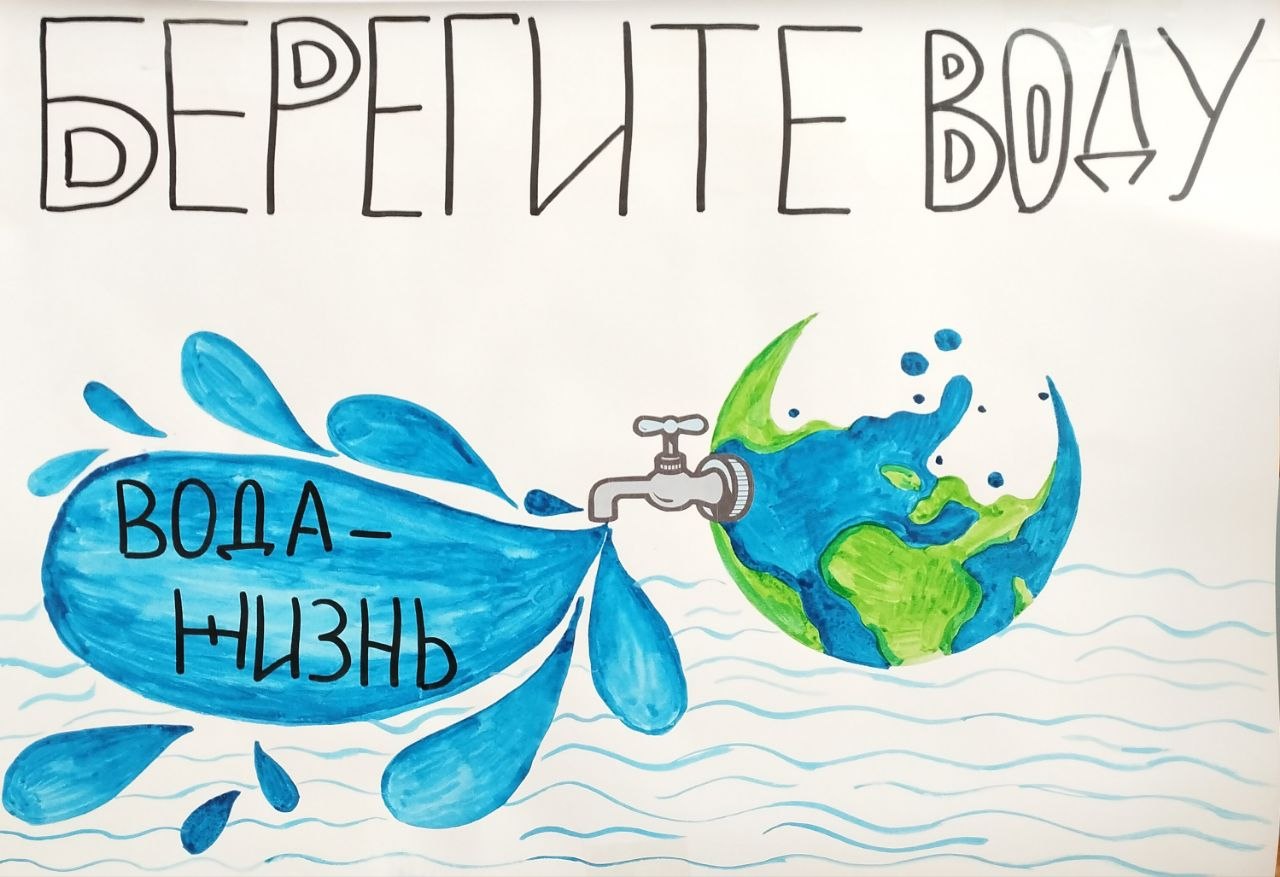 БЕРЕГИТЕ ВОДУ
ВОДА –
ЖИЗНЬ